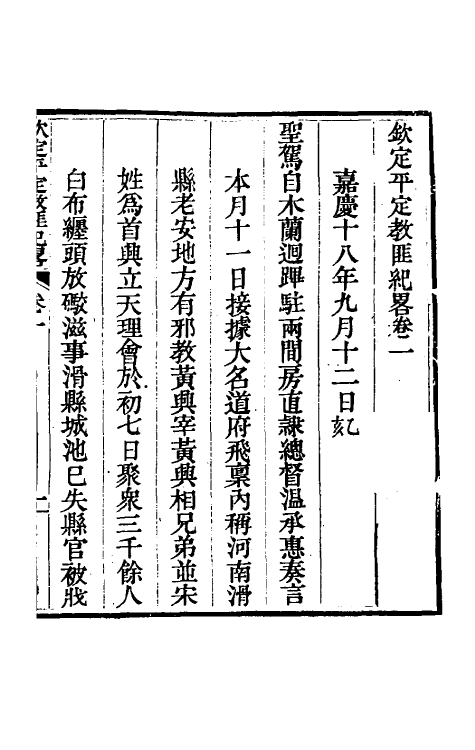 欽定平定教匪紀畧卷一
嘉慶十八年九月十二日
聖駕自木蘭迴蹕駐兩間房直隸總督溫承惠奏言
本月十一日接據大名道府飛稟內稱河南滑
縣老安地方有邪教黃興宰黃興相兄弟並宋
姓為首興立天理會於初七日聚衆三千餘人
白布纏頭放礮滋事滑縣城池已失縣官被戕
欽定平定教匪紀畧
卷一
一